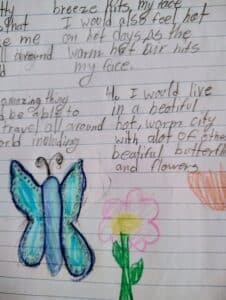 all around
amazing thing
be able to
travel all around
including
breeze hits, my face
I would also feel hot
on hot days as the
warm hot air hits
my face.
4. I would live
in a beatiful
hot, warm city
with alot of othe
beatiful butterfl
and flowers